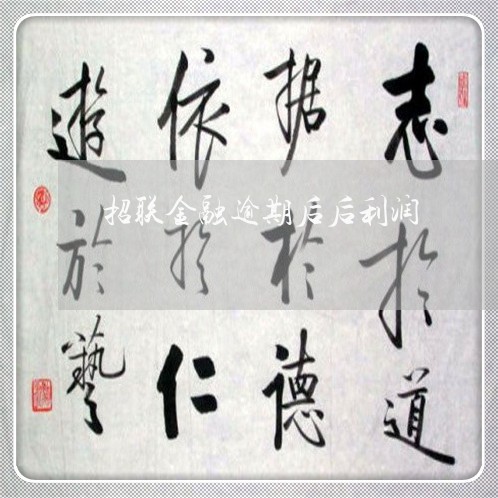 志於道
据於德
依於仁
遊於藝
招联金融逾期后后利润